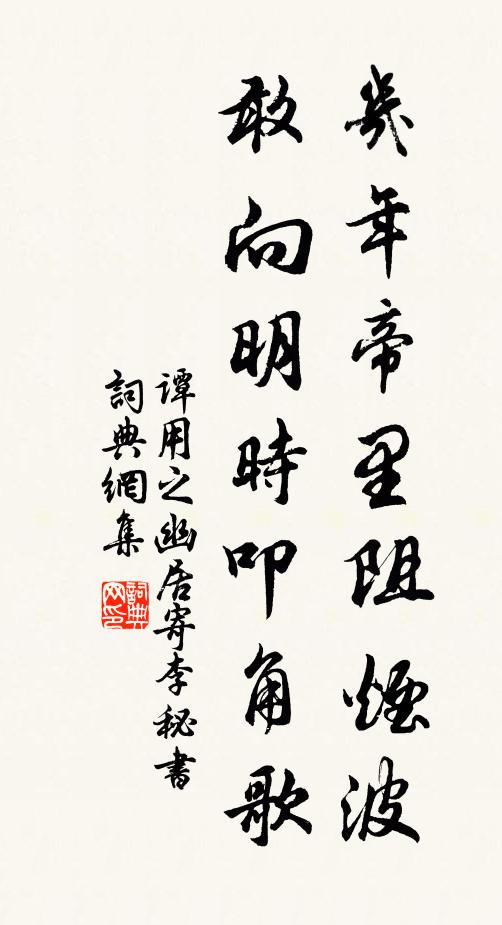 幾年帝里阻煙波
敢向明時叩角歌
譚用之幽居寄李秘書
詞典網集
詞典網印